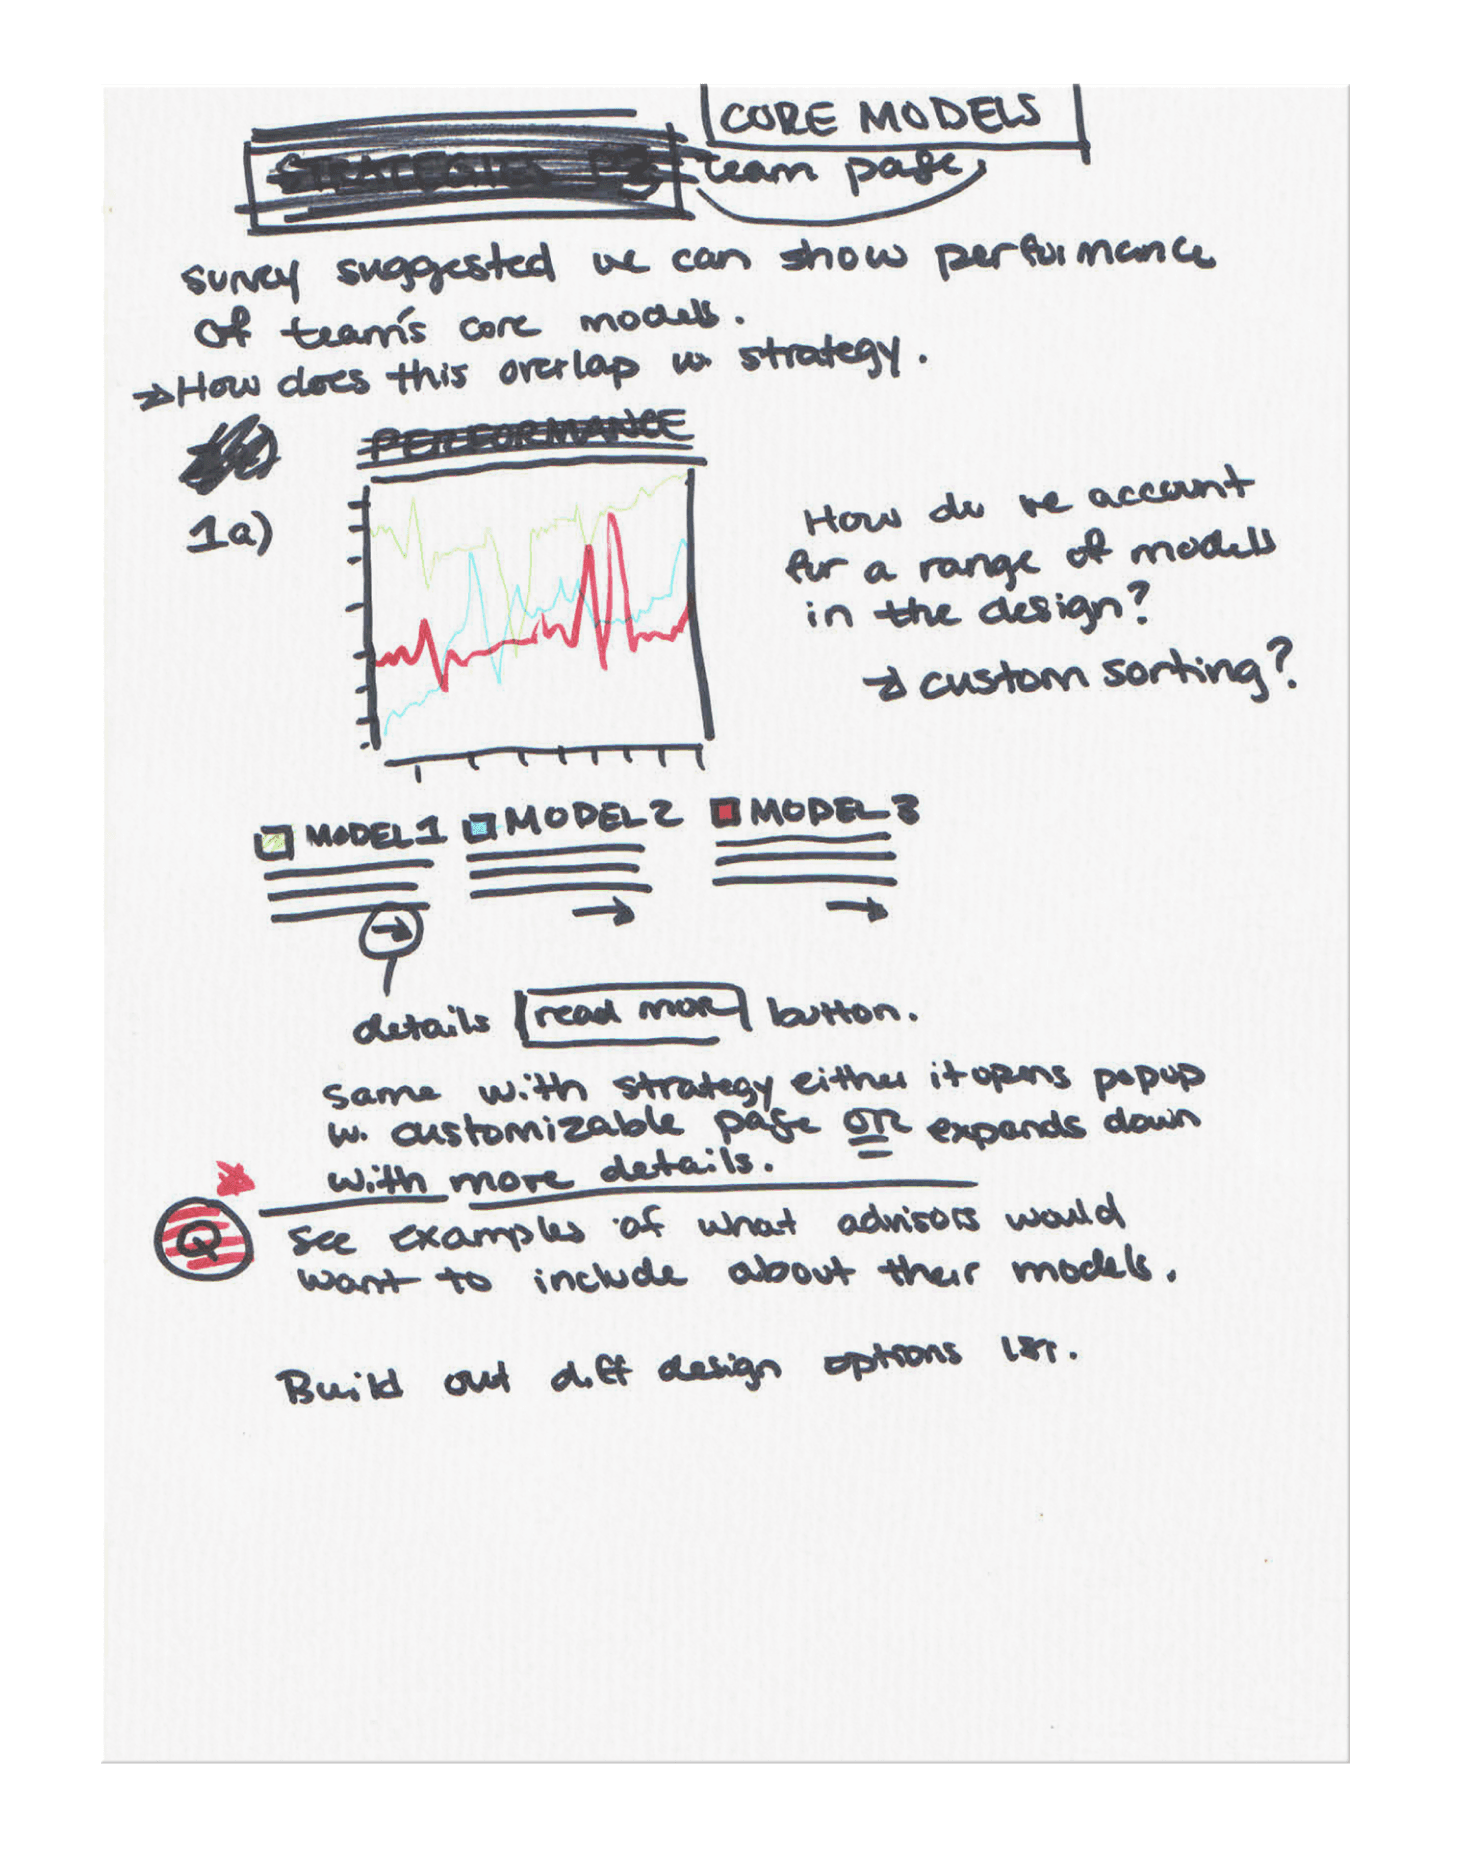 CORE MODELS
STRATEGIES P3 team page
survey suggested we can show performance
of team's core models.
→ How does this overlap w. strategy.
PERFORMANCE
1a)
How do we account
for a range of models
in the design?
→ custom sorting?
MODEL 1 MODEL 2 MODEL 3
details read more button.
same with strategy either it opens popup
w. customizable page OR expands down
with more details.
Q
see examples of what advisors would
want to include about their models.
Build out diff design options 1st.